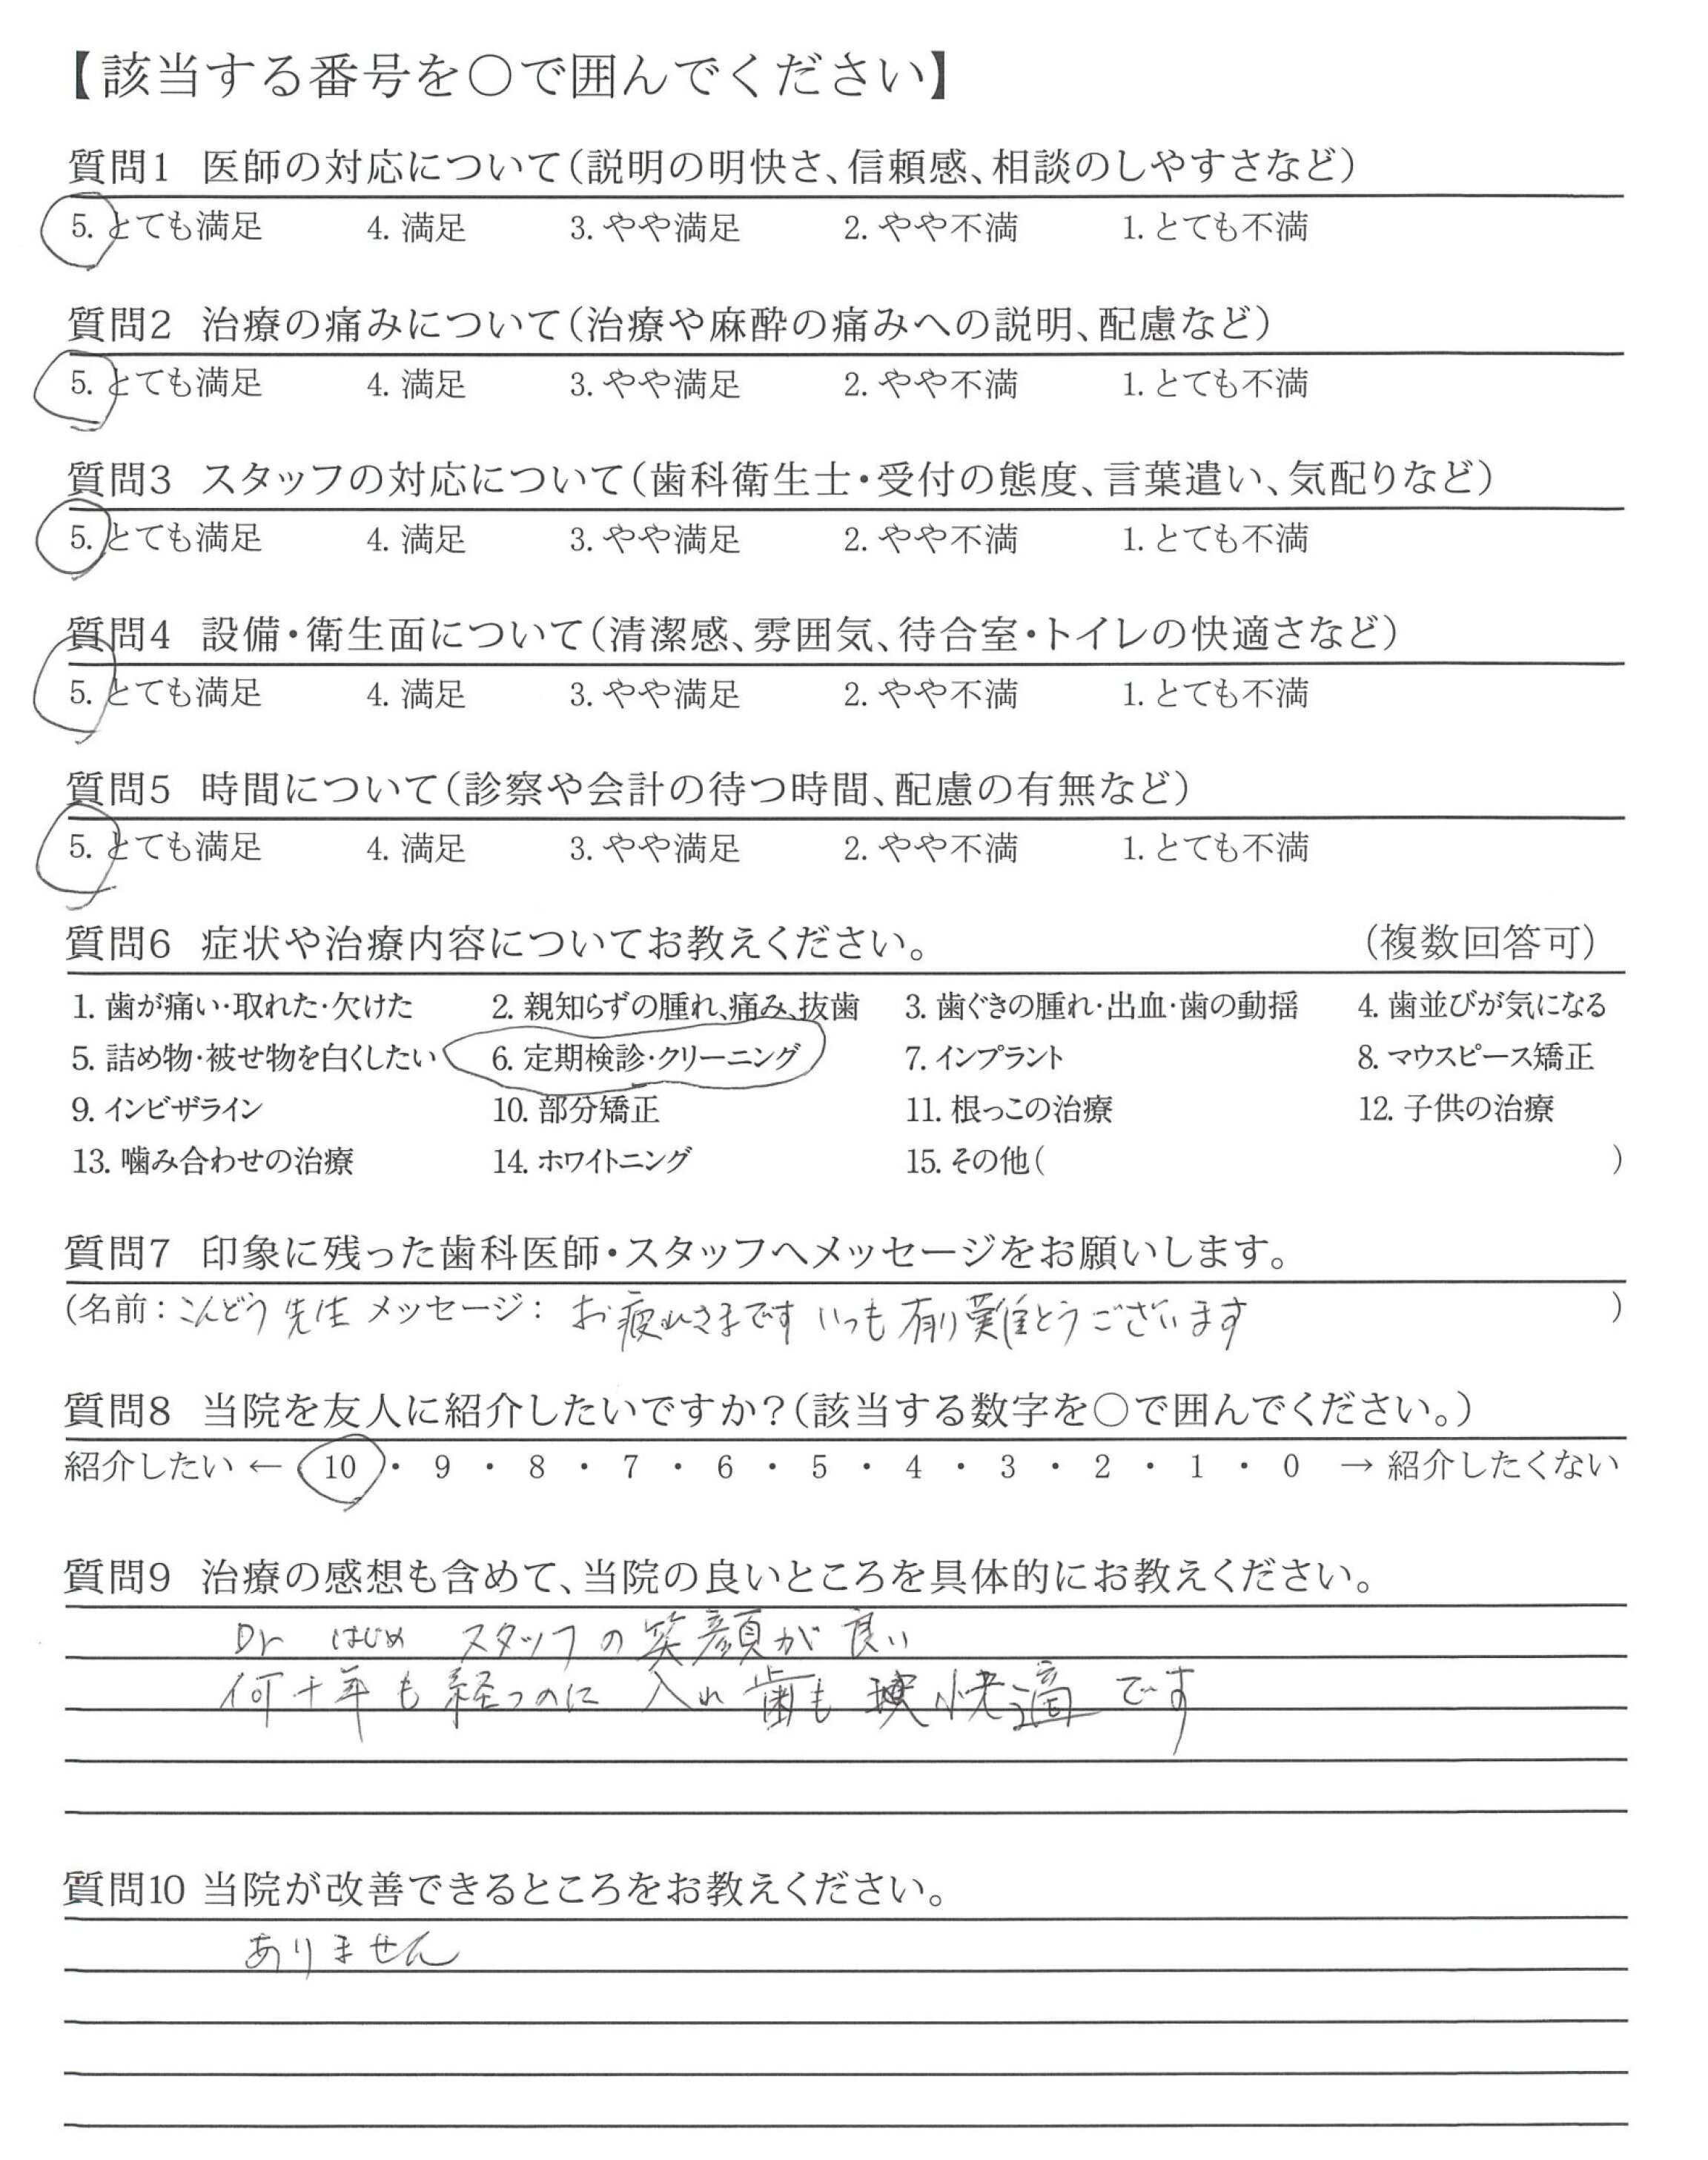 【該当する番号を○で囲んでください】
質問1 医師の対応について(説明の明快さ、信頼感、相談のしやすさなど)
5. とても満足 4. 満足 3. やや満足 2. やや不満 1. とても不満
質問2 治療の痛みについて(治療や麻酔の痛みへの説明、配慮など)
5. とても満足 4. 満足 3. やや満足 2. やや不満 1. とても不満
質問3 スタッフの対応について(歯科衛生士・受付の態度、言葉遣い、気配りなど)
5. とても満足 4. 満足 3. やや満足 2. やや不満 1. とても不満
質問4 設備・衛生面について(清潔感、雰囲気、待合室・トイレの快適さなど)
5. とても満足 4. 満足 3. やや満足 2. やや不満 1. とても不満
質問5 時間について(診察や会計の待つ時間、配慮の有無など)
5. とても満足 4. 満足 3. やや満足 2. やや不満 1. とても不満
質問6 症状や治療内容についてお教えください。 (複数回答可)
1. 歯が痛い・取れた・欠けた 2. 親知らずの腫れ、痛み、抜歯 3. 歯ぐきの腫れ・出血・歯の動揺 4. 歯並びが気になる
5. 詰め物・被せ物を白くしたい 6. 定期検診・クリーニング 7. インプラント 8. マウスピース矯正
9. インビザライン 10. 部分矯正 11. 根っこの治療 12. 子供の治療
13. 噛み合わせの治療 14. ホワイトニング 15. その他( )
質問7 印象に残った歯科医師・スタッフへメッセージをお願いします。
(名前：こんどう先生 メッセージ： お疲れさまです いつも有り難とうございます )
質問8 当院を友人に紹介したいですか？(該当する数字を○で囲んでください。)
紹介したい ← 10 ・ 9 ・ 8 ・ 7 ・ 6 ・ 5 ・ 4 ・ 3 ・ 2 ・ 1 ・ 0 → 紹介したくない
質問9 治療の感想も含めて、当院の良いところを具体的にお教えください。
Dr はじめ スタッフの笑顔が良い
何十年も経つのに 入れ歯も 快適 です
質問10 当院が改善できるところをお教えください。
ありません